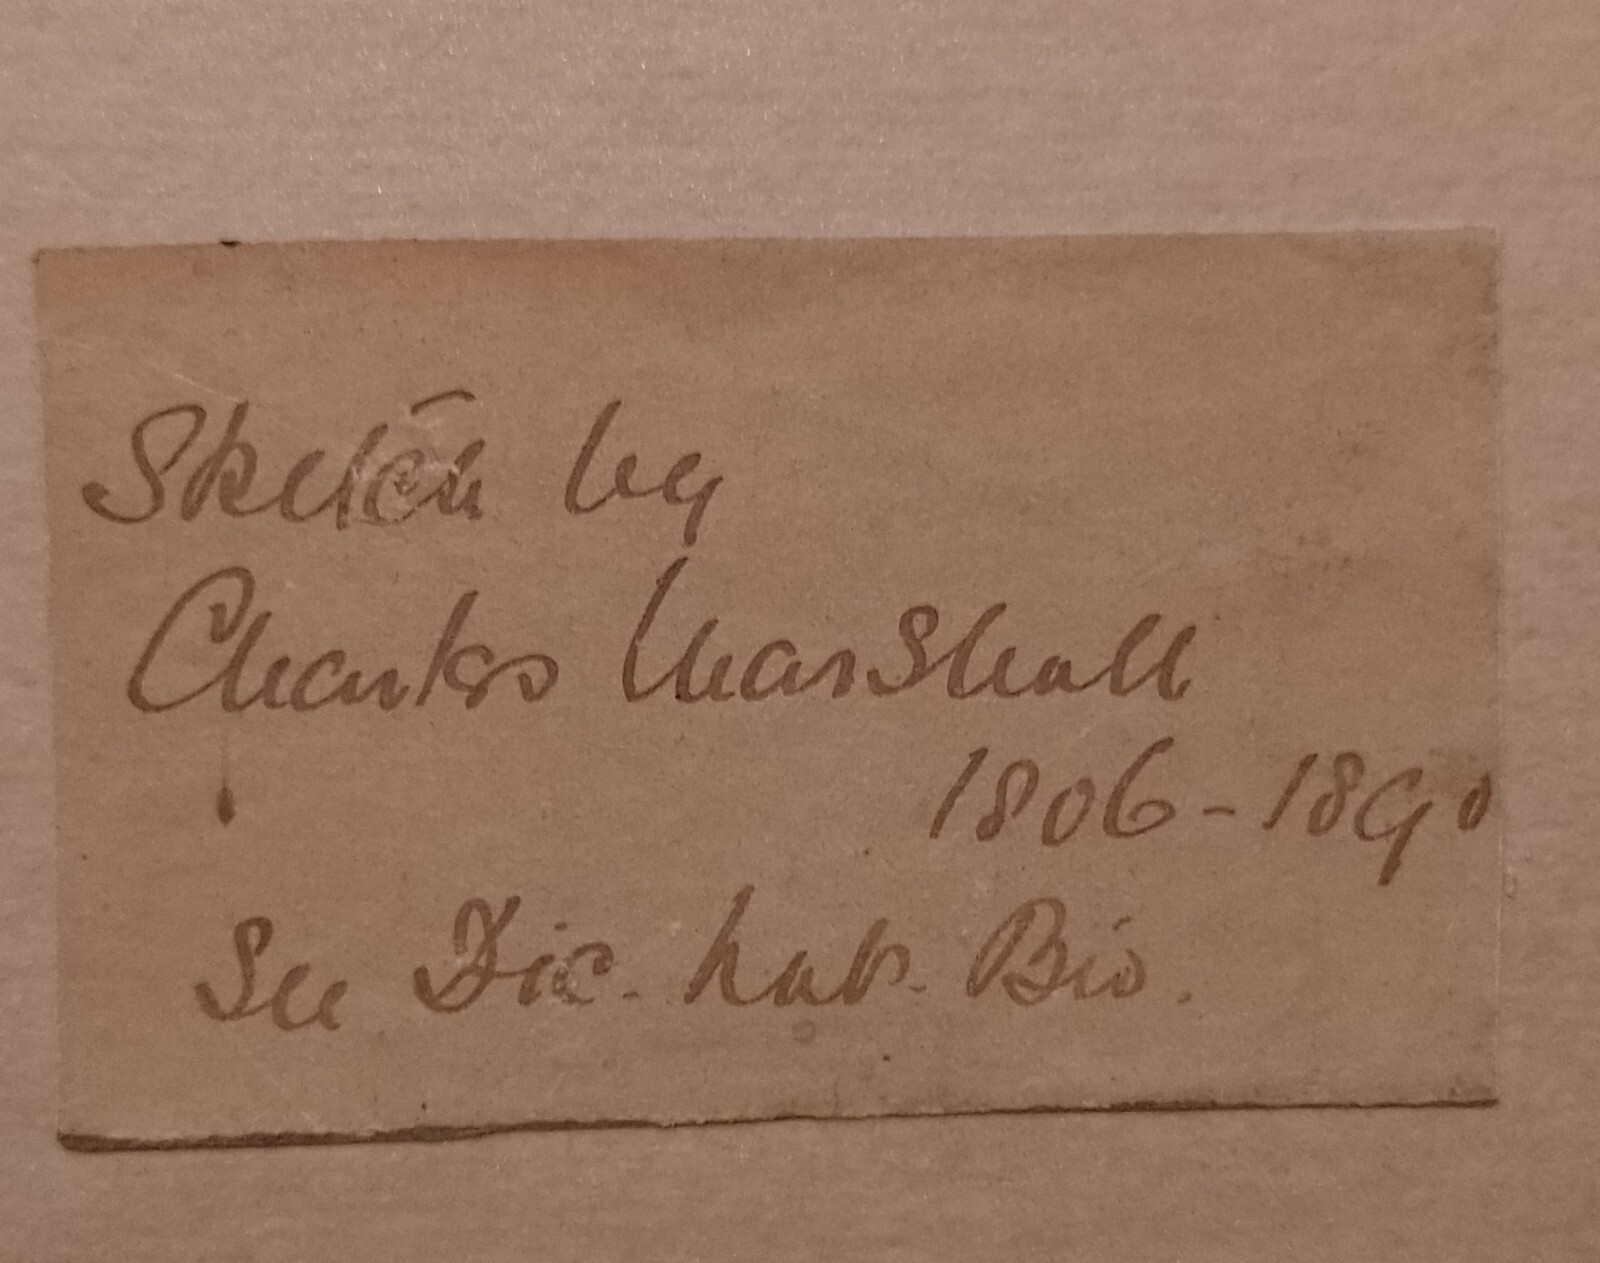 Sketch by
Charles Marshall
1806-1890
See Dic. Nat. Bio.